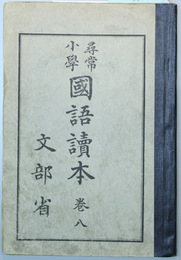 尋常
小學
國語讀本 卷八
文部省